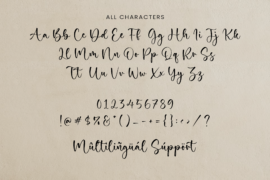 ALL CHARACTERS
Aa Bb Cc Dd Ee Ff Gg Hh Ii Jj Kk
Ll Mm Nn Oo Pp Qq Rr Ss
Tt Uu Vv Ww Xx Yy Zz
0123456789
!@#$%&*()_-+={}:;,./?
Múltílíngúál Súppórt